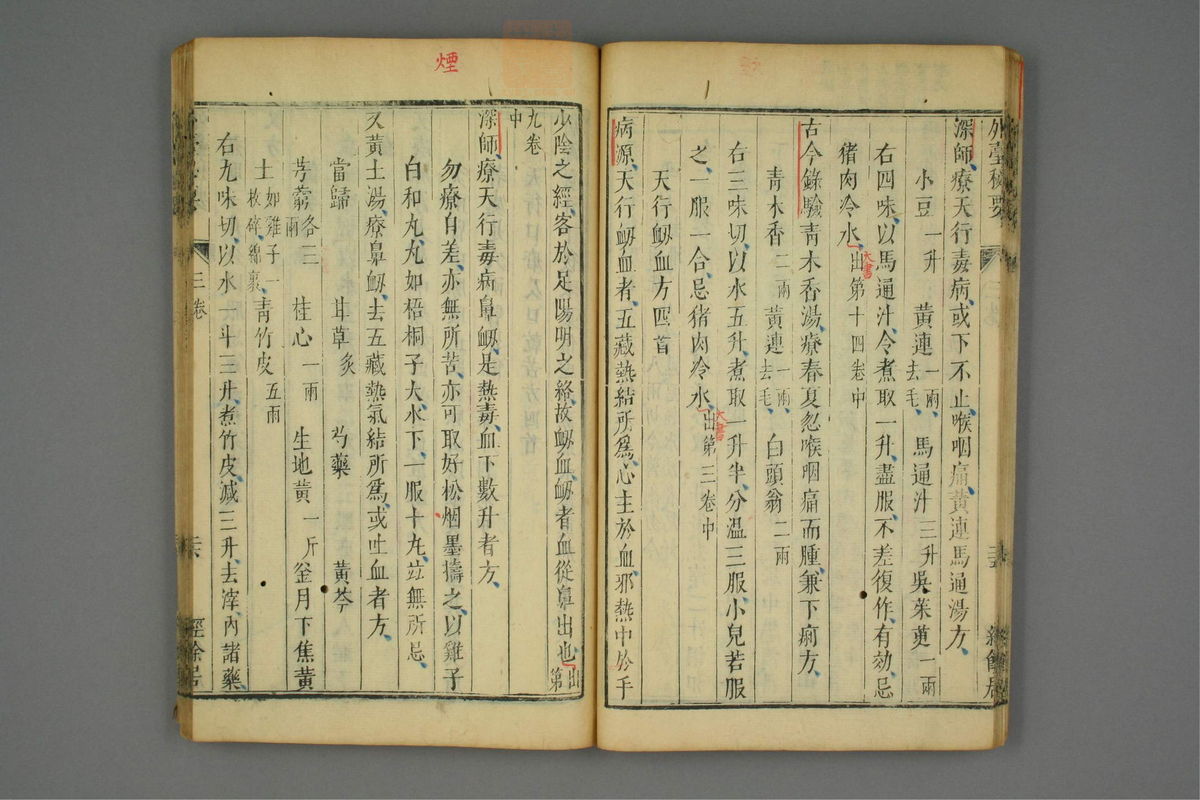 外臺秘要
深師療天行毒病或下不止喉咽痛黃連馬通湯方
小豆一升 黃連一兩去毛 馬通汁三升 吳茱萸一兩
右四味以馬通汁令煮取一升盡服不差復作有効忌
豬肉冷水出第十四卷中
大書
古今錄驗青木香湯療春夏忽喉咽痛而腫兼下痢方
青木香二兩 黃連一兩去毛 白頭翁二兩
右三味切以水五升煮取一升半分溫三服小兒若服
之一服一合忌豬肉冷水出第三卷中
大書
天行衂血方四首
病源天行衂血者五藏熱結所爲心主於血邪熱中於手
煙
少陰之經客於足陽明之絡故衂血衂者血從鼻出也出第
九卷中
深師療天行毒病鼻衂是熱毒血下數升者方
勿療自差亦無所苦亦可取好松烟墨擣之以雞子
白和丸丸如梧桐子大水下一服十丸竝無所忌
又黃土湯療鼻衂去五藏熱氣結所爲或吐血者方
當歸 甘草炙 芍藥 黃芩
芎藭各三兩 桂心一兩 生地黃一斤 釜月下焦黃
土如雞子一枚碎綿裹 青竹皮五兩
右九味切以水一斗三升煮竹皮減三升去滓內諸藥
三卷
經餘居